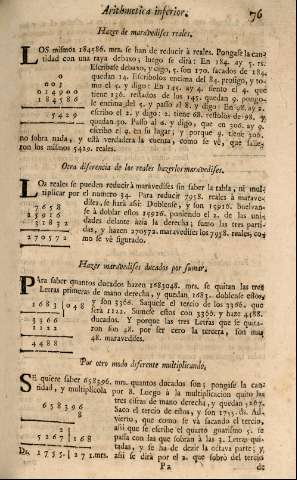 Arithmetica inferior. 76
Hazer de maravedises reales.
LOS mismos 184586. mrs. se han de reducir à reales. Pongase la can-
tidad con una raya debaxo; luego se dira: En 184. ay 5. 15.
Escribase debaxo, y digo, 5. son 170. sacados de 184.
quedan 14. Escribolos encima del 84. prosigo, y to-
mo el 5. y digo: En 145. ay 4. siento el 4. que
tiene 136. restados de los 145. quedan 9. pongo-
le encima del 5. y passo el 8. y digo: En 98. ay 2.
escribo el 2. y digo: 2. tiene 68. restolos de 98. y
quedan 30. Passo al 6. y digo, que en 306. ay 9.
escribo el 9. en su lugar; y porque 9. tiene 306.
no sobra nada, y està verdadera la cuenta, como se vè, que salen
con los mismos 5429. reales.
0
003
014900
184586
5429
Otra diferencia de los reales hazerlos maravedises.
LOs reales se pueden reducir à maravedises sin saber la tabla, ni mul-
tiplicar por el numero 34. Para reducir 7958. reales à marave-
dises, se harà assi: Doblense, y son 15916. buelvan-
se à doblar estos 15916. poniendo el 2. de las uni-
dades delante àzia la derecha; sumo las tres parti-
das, y hazen 270572. maravedises los 7958. reales, co-
mo se vè figurado.
7658
15916
31832
270572
Hazer maravedises ducados por sumar.
PAra saber quantos ducados hazen 1683048. mrs. se quitan las tres
Letras primeras de mano derecha, y quedan 1683. doblense estos,
y son 3366. Saquese el tercio de los 3366. que
serà 1122. Sumese estos con 3366. y haze 4488.
ducados. Y porque las tres Letras que se quita-
ron son 48. por ser cero la tercera, son mas
48. maravedises.
1683 | 048
3366
1122
4488
Por otro modo diferente multiplicando.
SE quiere saber 658396. mrs. quantos ducados son; pongase la can-
tidad, y multiplicola por 8. Luego à la multiplicacion quito las
tres cifras de mano derecha, y quedan 5267.
Saco el tercio de estos, y son 1755. ds. Ad-
vierto, que como se và sacando el tercio,
assi que se escribe el quarto guarismo 5. se
passa con las que sobran à las 3. Letras qui-
tadas, y se ha de dezir la octava parte; y
assi se dirà por el 2. que sobrò del tercio
658396
8
21
5267 | 168
Ds. 1755. | 271. mrs.
Pa de